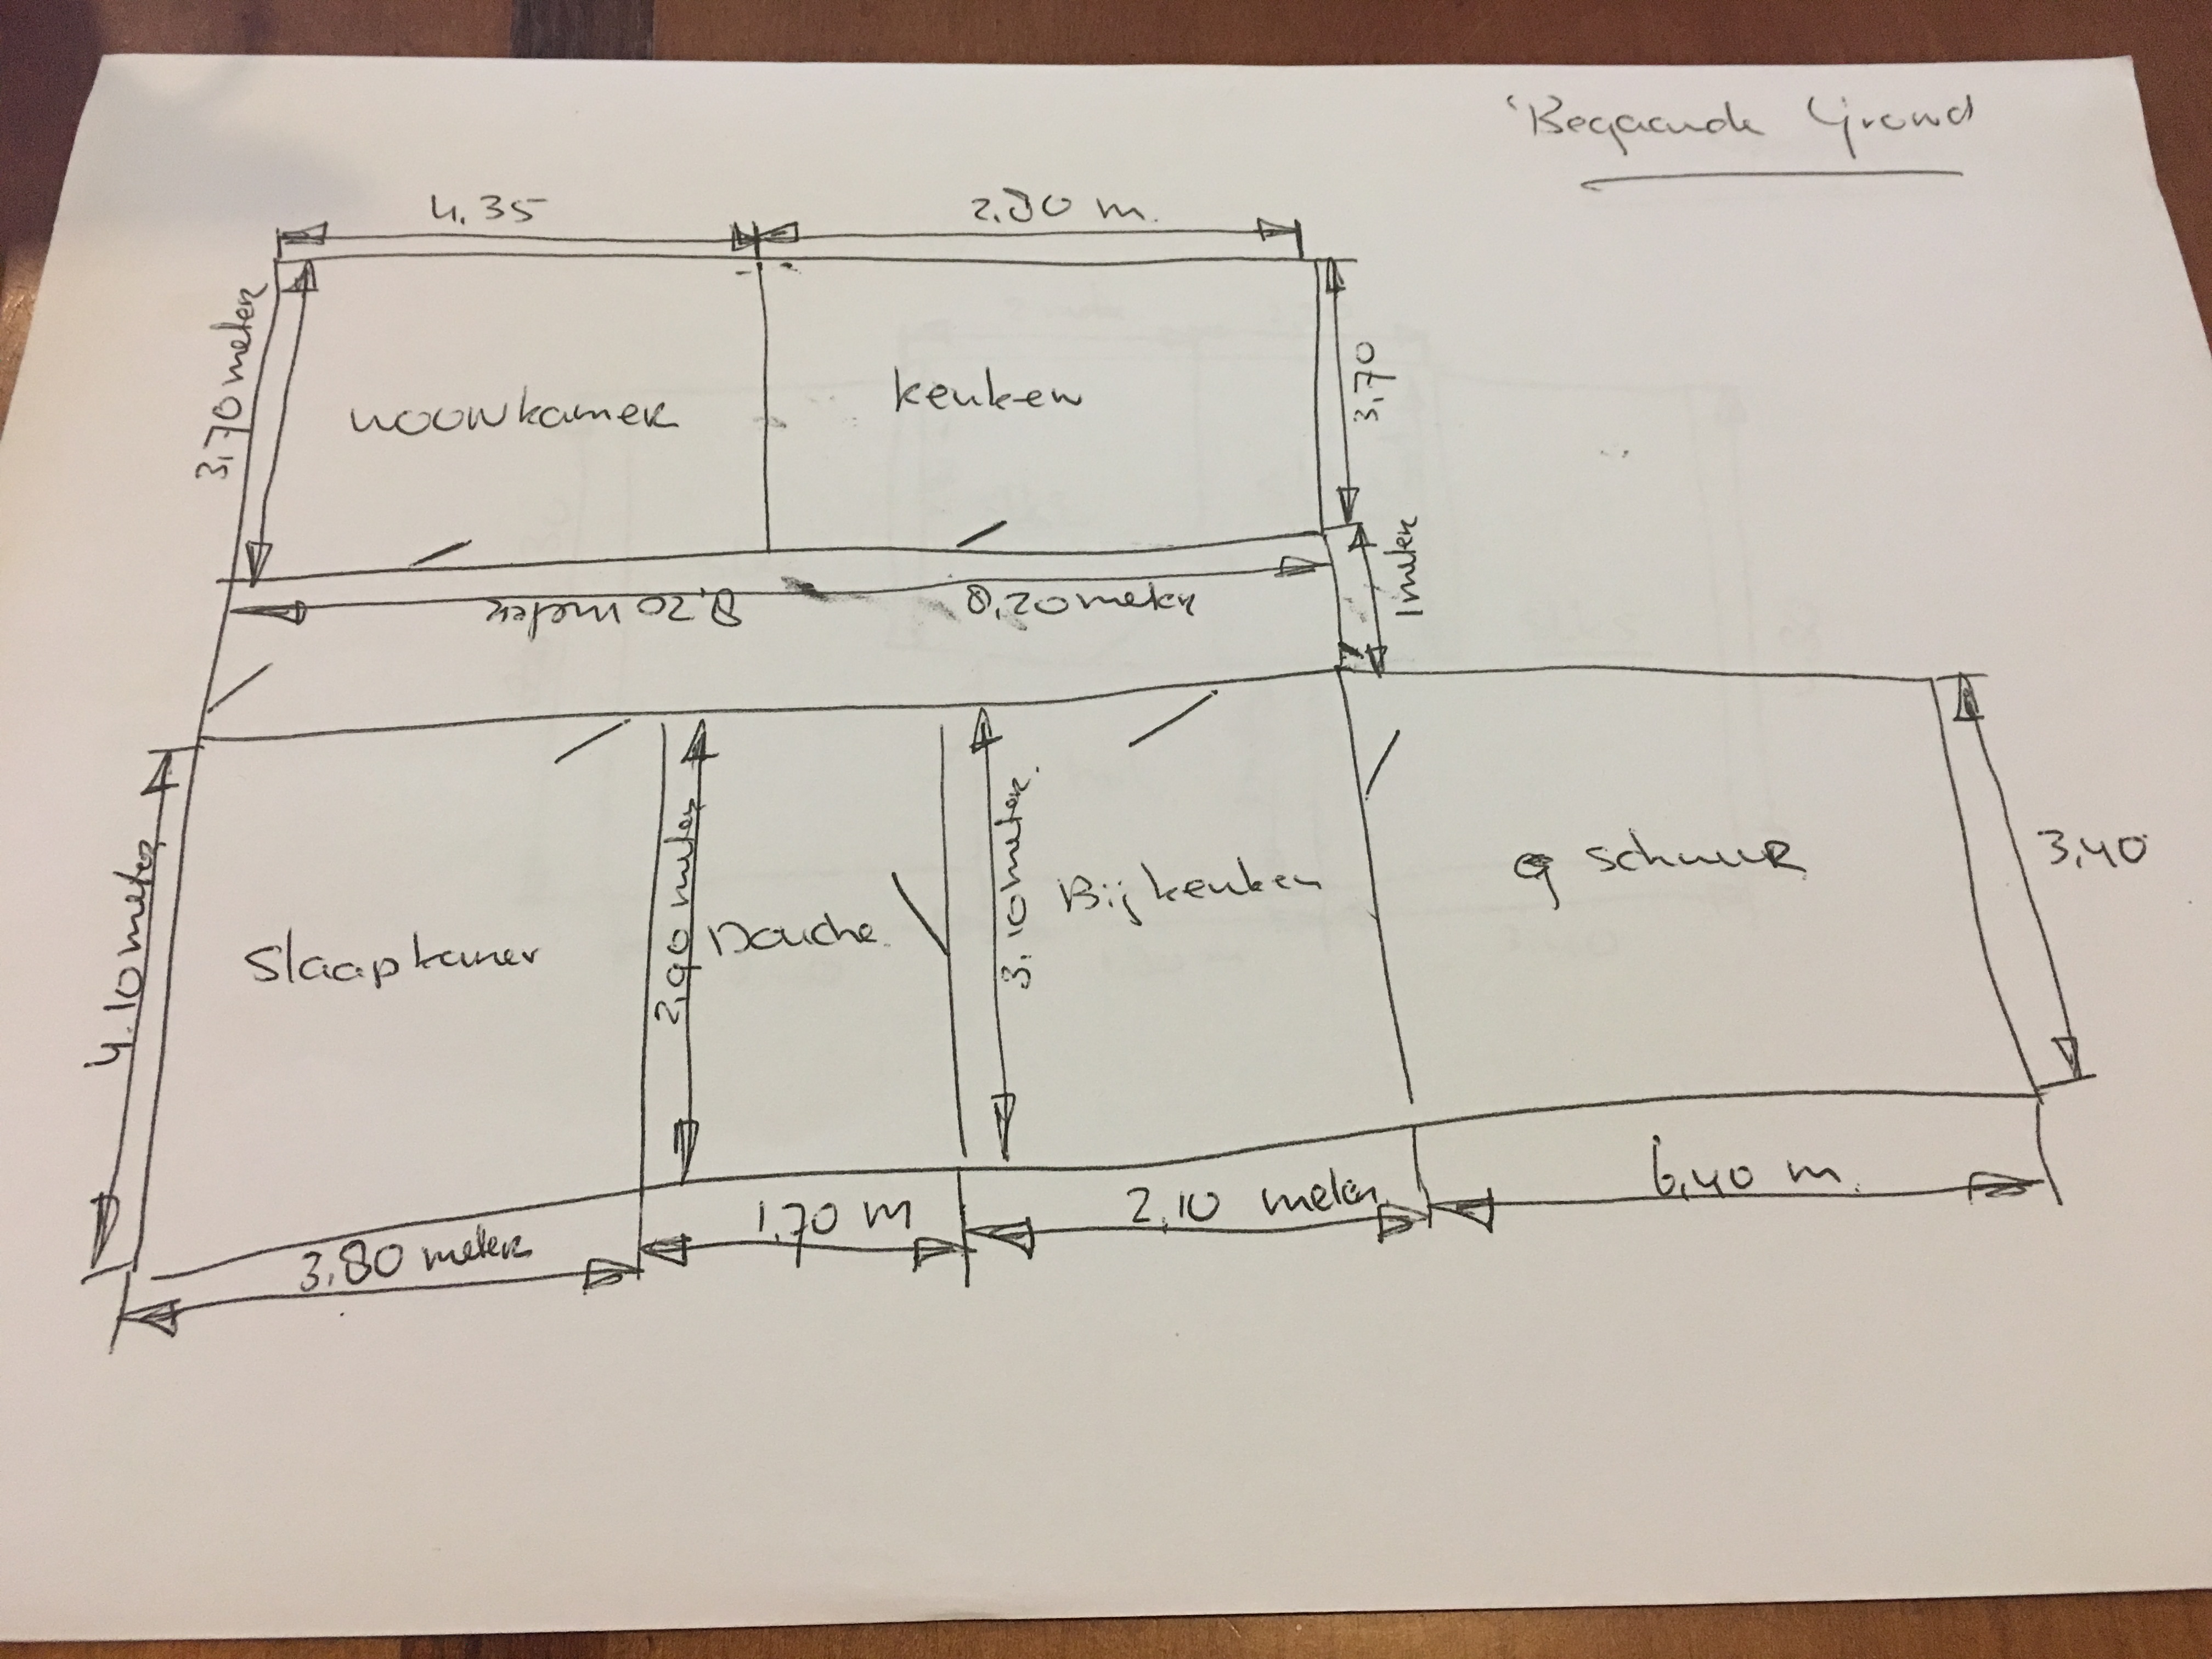 Begaande Grond
4.35
2.80 m.
3.70 meter
woonkamer
keuken
3.70
8.20 meter
8.20 meter
1 meter
4.10 meter
Slaapkamer
2.90 meter
Douche
3.10 meter.
Bijkeuken
schuur
3.40
3.80 meter
1.70 m
2.10 meter
6.40 m.